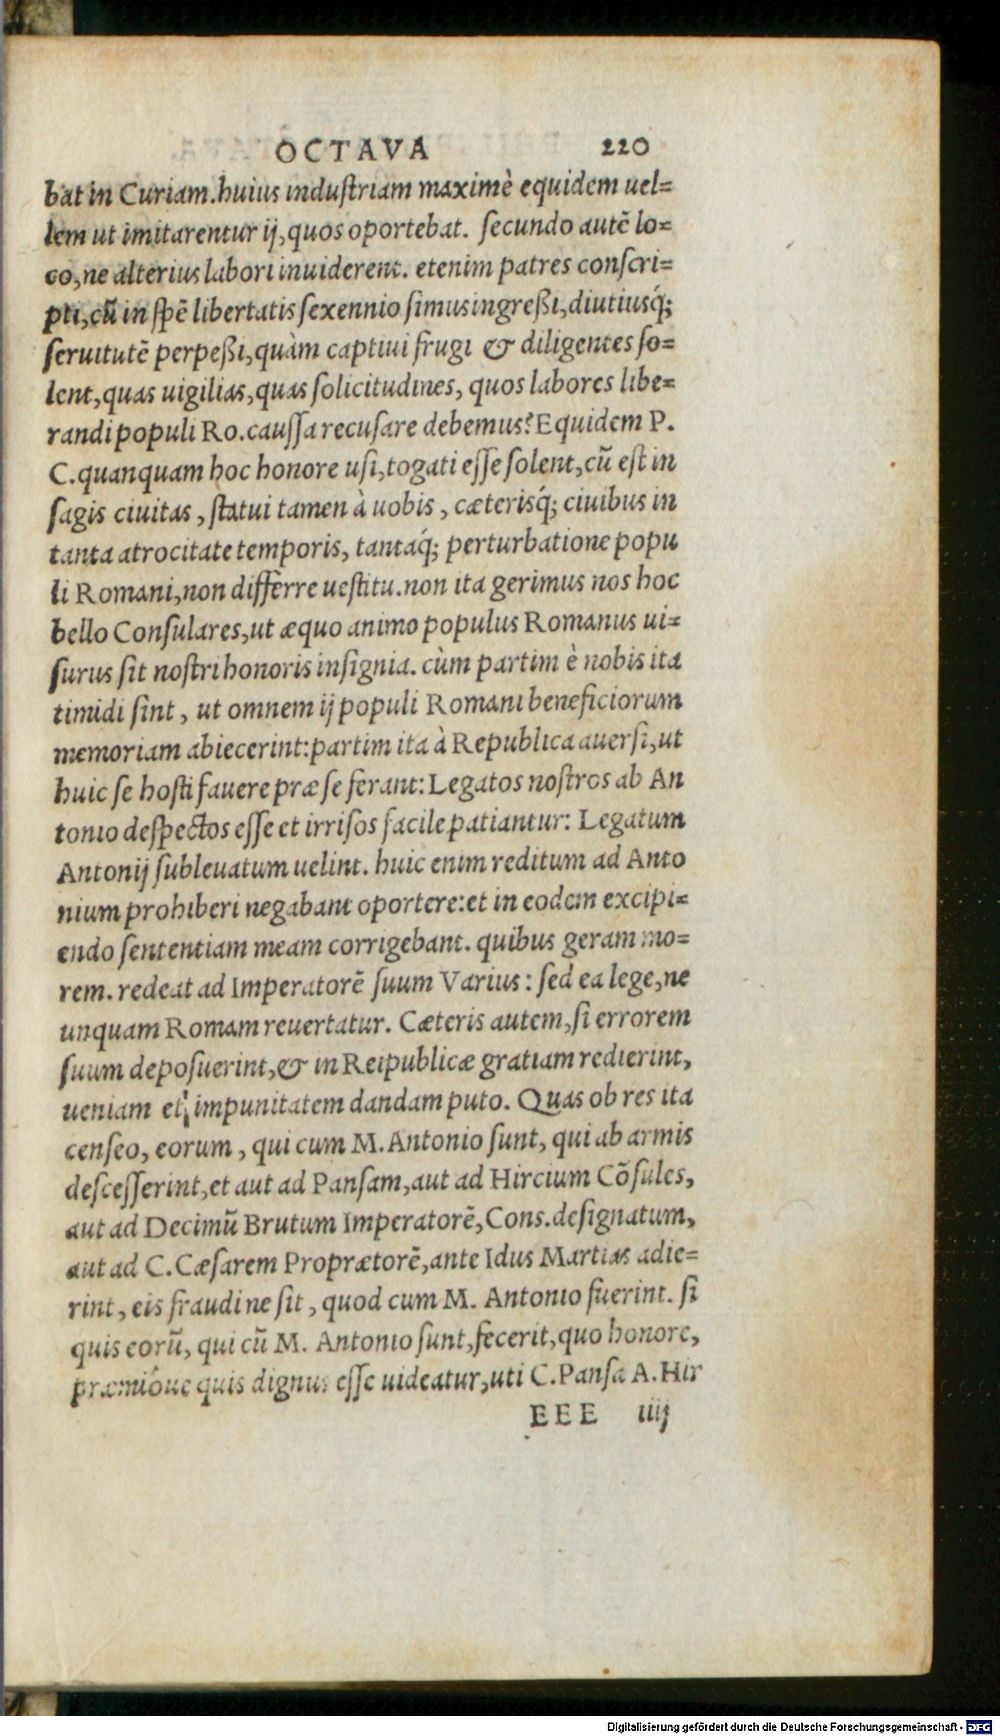 OCTAVA 220
bat in Curiam.huius industriam maximè equidem uel=
lem ut imitarentur ij,quos oportebat. secundo autē lo=
co,ne alterius labori inuiderent. etenim patres conscri=
pti,cū in spē libertatis sexennio simus ingreßi,diutiusq́;
seruitutē perpeßi,quàm captiui frugi & diligentes so=
lent,quas uigilias,quas solicitudines, quos labores libe=
randi populi Ro.caussa recusare debemus?Equidem P.
C.quanquam hoc honore usi,togati esse solent,cū est in
sagis ciuitas, statui tamen à uobis, cæterisq́; ciuibus in
tanta atrocitate temporis, tantaq́; perturbatione popu
li Romani,non differre uestitu.non ita gerimus nos hoc
bello Consulares,ut æquo animo populus Romanus ui=
surus sit nostri honoris insignia. cùm partim è nobis ita
timidi sint, ut omnem ij populi Romani beneficiorum
memoriam abiecerint:partim ita à Republica auersi,ut
huic se hosti fauere præ se ferant: Legatos nostros ab An
tonio despectos esse et irrisos facile patiantur: Legatum
Antonij subleuatum uelint. huic enim reditum ad Anto
nium prohiberi negabant oportere:et in eodem excipi=
endo sententiam meam corrigebant. quibus geram mo=
rem. redeat ad Imperatorē suum Varius: sed ea lege,ne
unquam Romam reuertatur. Cæteris autem,si errorem
suum deposuerint,& in Reipublicæ gratiam redierint,
ueniam et impunitatem dandam puto. Quas ob res ita
censeo, eorum, qui cum M.Antonio sunt, qui ab armis
descesserint,et aut ad Pansam,aut ad Hircium Cōsules,
aut ad Decimū Brutum Imperatorē,Cons.designatum,
aut ad C.Cæsarem Proprætorē,ante Idus Martias adie=
rint, eis fraudi ne sit, quod cum M. Antonio fuerint. si
quis eorū, qui cū M. Antonio sunt,fecerit,quo honore,
præmióue quis dignus esse uideatur,uti C.Pansa A.Hir
EEE iiij
Digitalisierung gefördert durch die Deutsche Forschungsgemeinschaft - DFG